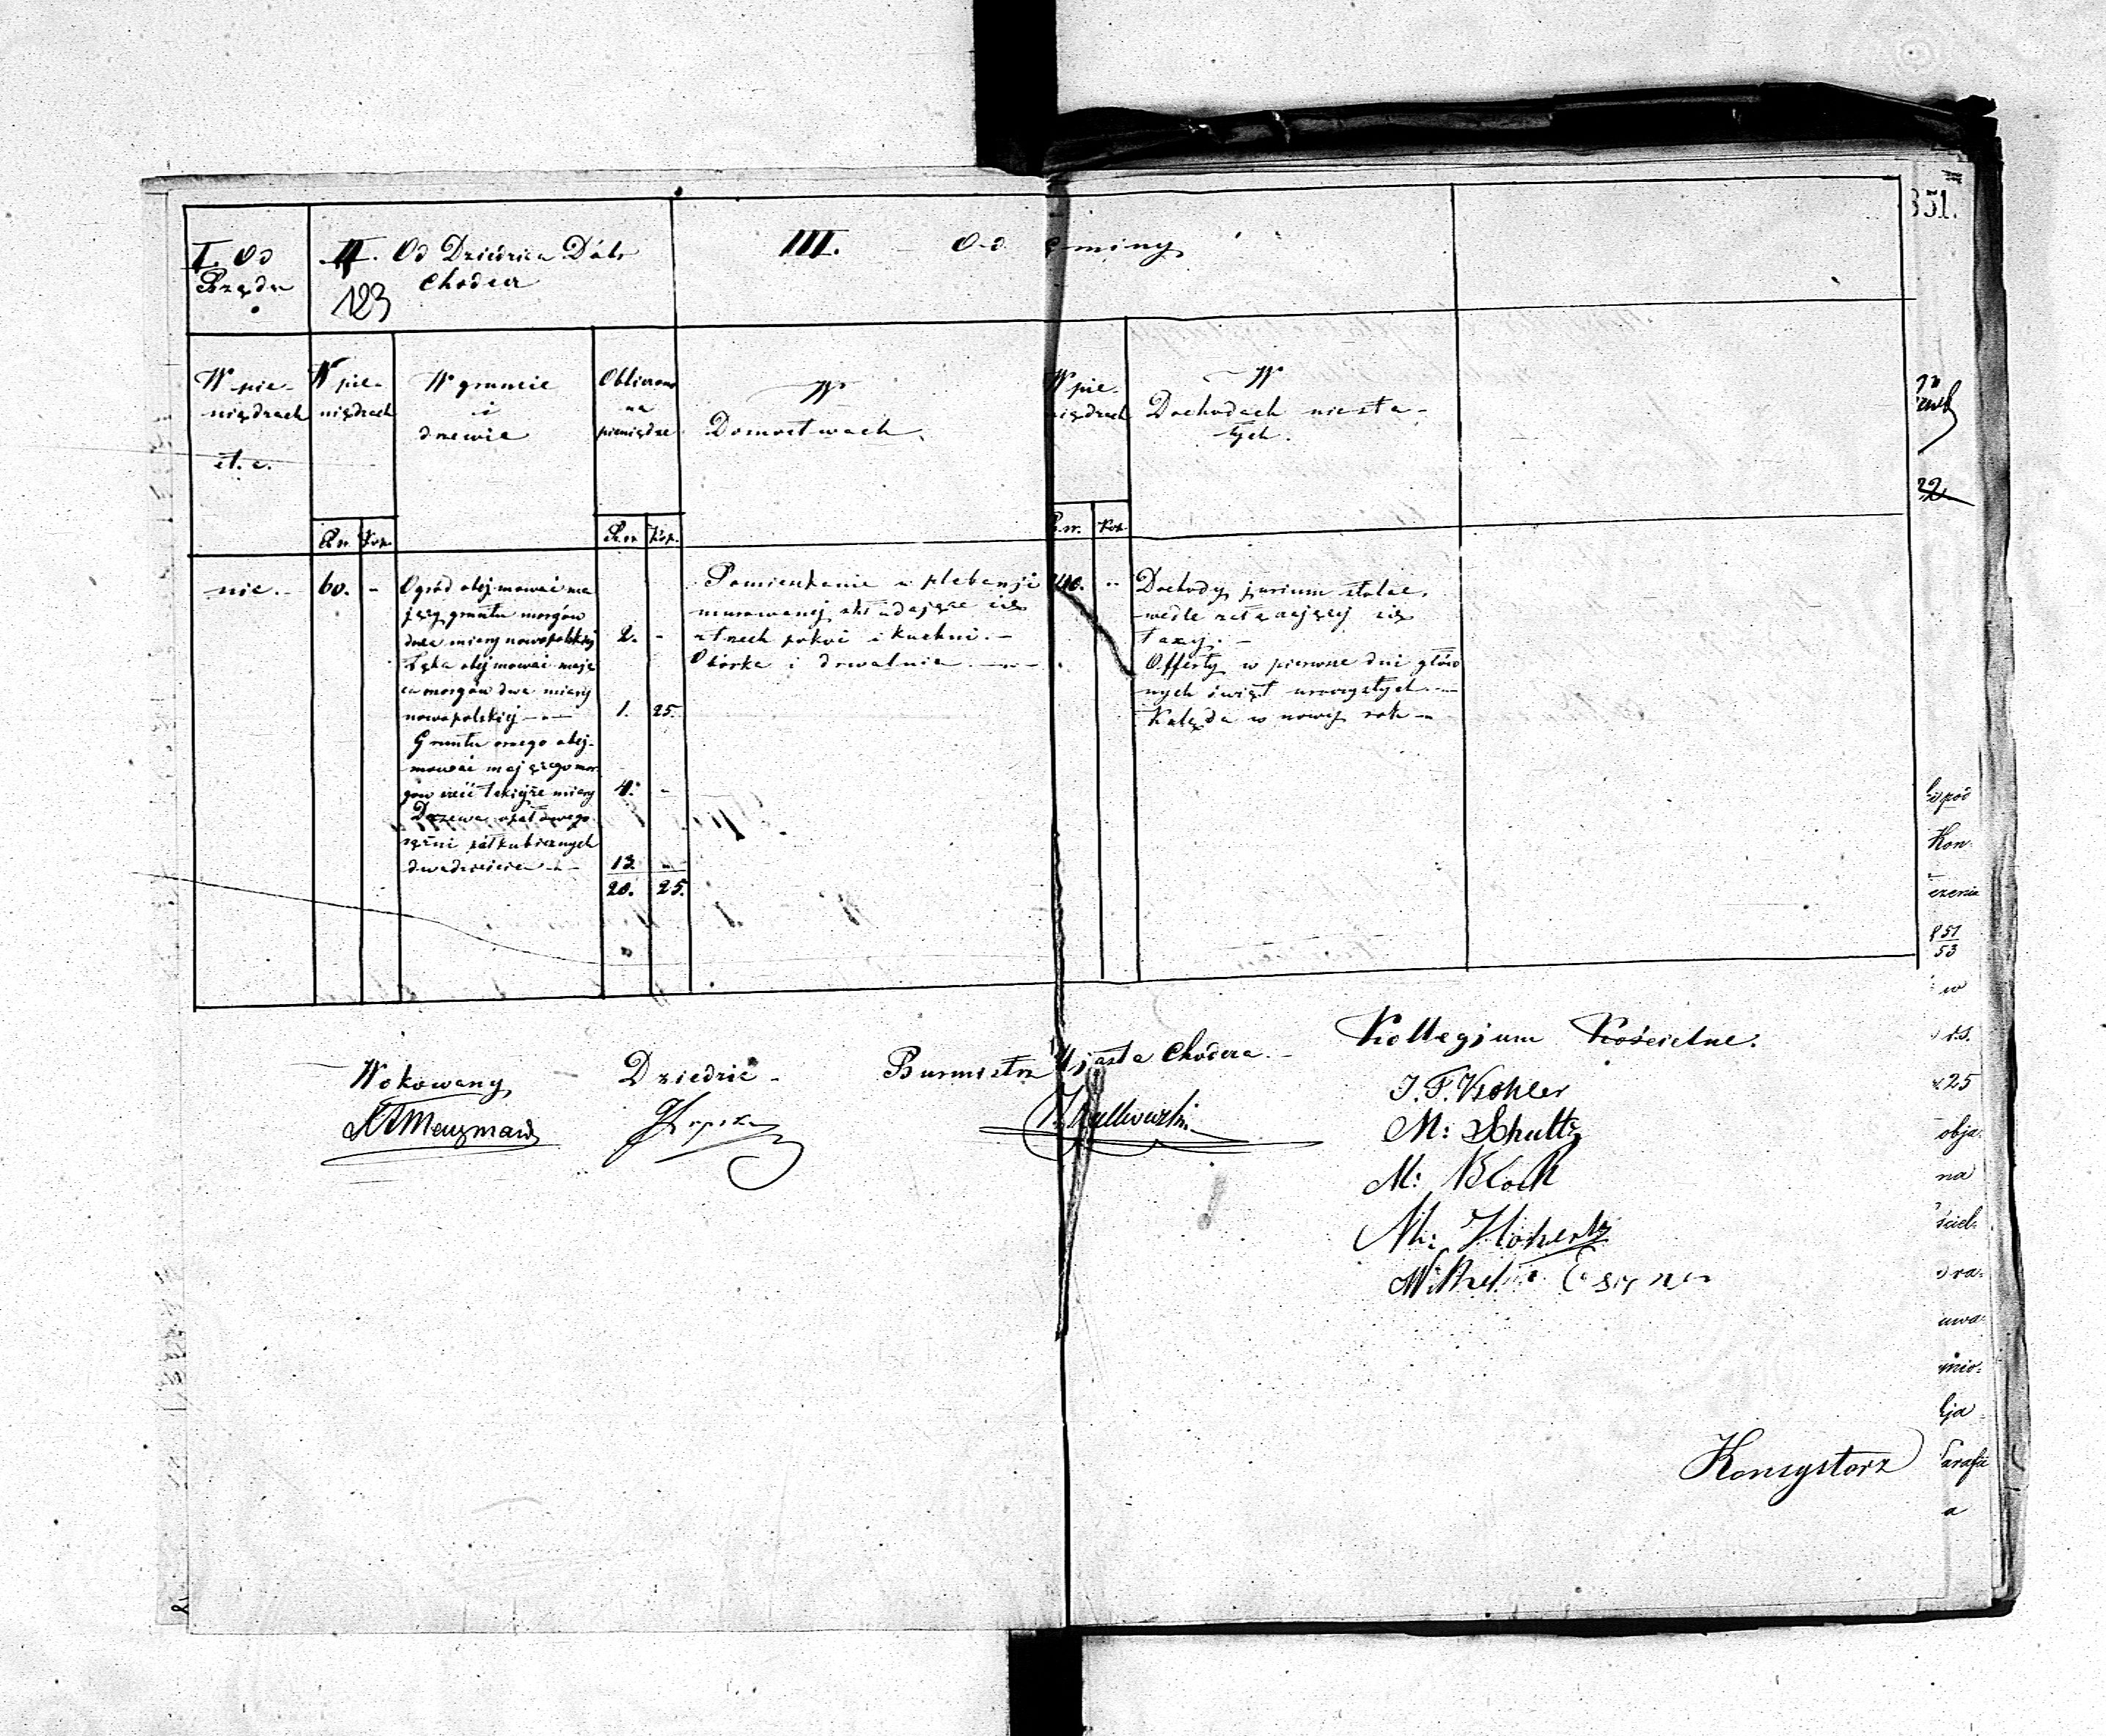 351.
I. Od
Rządu
II. Od Dziedzica Dóbr
Chodcza
123
III. Od gminy
W pie-
niędzach
et. c.
W pie-
niędzach
W gruncie
i
drzewie
Obliczone
na
pieniądze
W
Domostwach.
W pie-
niędzach
W
Dochodach niesta-
łych.
Rsr. Kop.
Rsr. Kop.
Rsr. Kop.
nie.-
60. -
Ogród objmować ma
jący gruntu morgów
dwa miary nowopolskiej 2. -
Łąka objmować mają
ca morgów dwa miary
nowopolskiej 1. 25.
Gruntu ornego obej-
mować mającego mor
gów sześć takiejże miary 4. -
Drzewa opałowego
sążni półkubicznych
dwadzieścia 13. -
20. 25.
Pomieszkanie w plebanji
murowanej składające się
z trzech pokoi i kuchni.-
Obórka i drwalnia
40. "
Dochody jurium stolae,
wedle
taxy.-
Offerty w pierwsze dni głów
nych świąt uroczystych
Kolęda w nowy rok
Wokowany
Dziedzic
Burmistrz Miasta Chodcza.-
Kollegjum Kościelne.
J. F. Kohler
M: Schultz
M: Block
Konsystorz
22
Kon-
851
53
w
r.s.
25
obja-
na
ściel-
uwa-
a